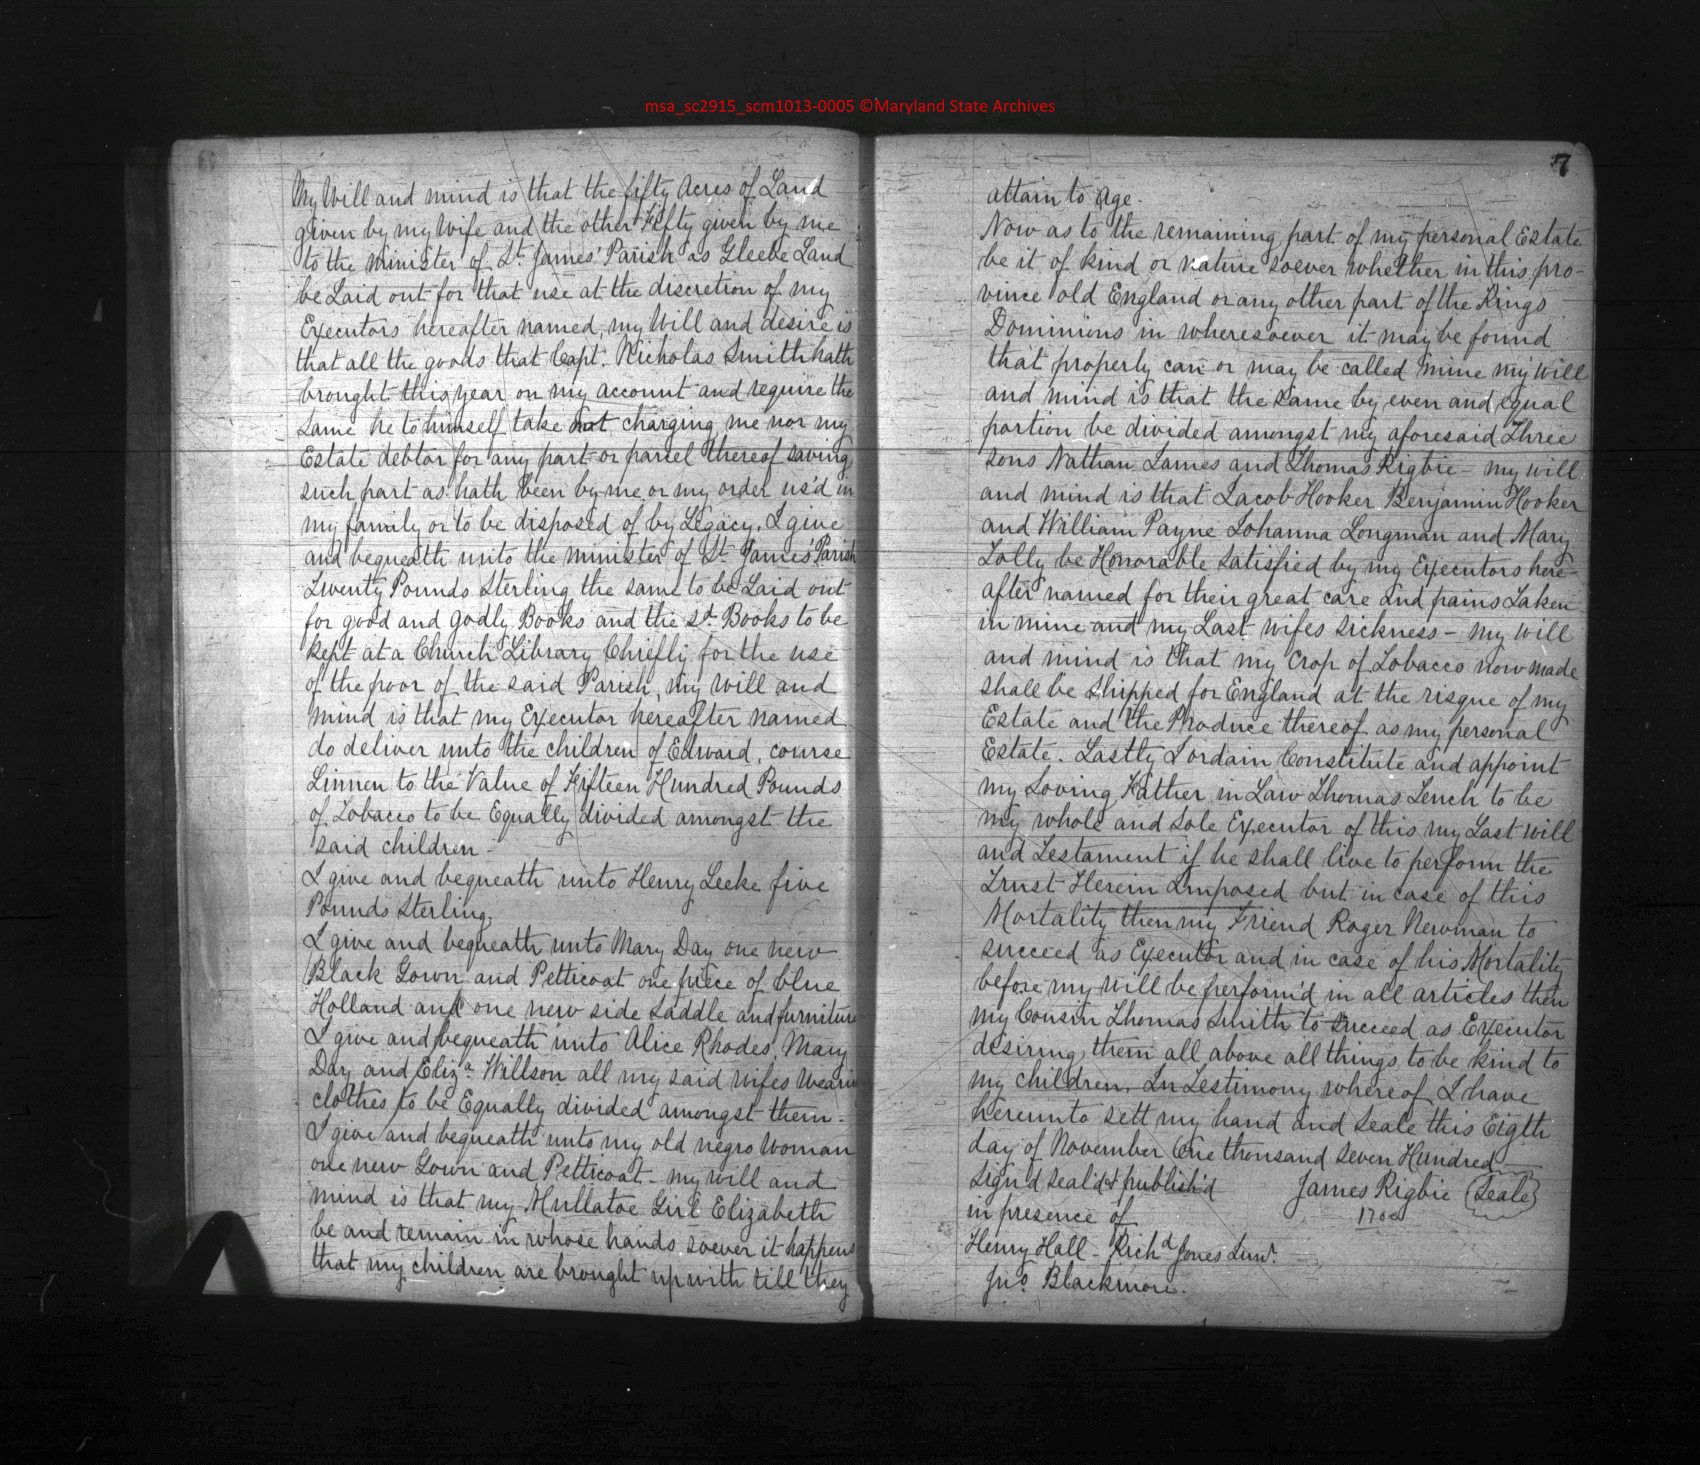 msa_sc2915_scm1013-0005 ©Maryland State Archives
6
My Will and mind is that the fifty Acres of Land
given by my Wife and the other Fifty given by me
to the minister of St. James' Parish as Gleebe Land
be Laid out for that use at the discretion of my
Executors hereafter named, my Will and desire is
that all the goods that Capt. Nicholas Smith hath
brought this year on my account and require the
Same he to himself take not charging me nor my
Estate debtor for any part or parcel thereof saving
such part as hath been by me or my order us'd in
my family or to be disposed of by Legacy. I give
and bequeath unto the minister of St. James' Parish
Twenty Pounds Sterling the same to be Laid out
for good and godly Books and the sd. Books to be
kept at a Church Library Chiefly for the use
of the poor of the said Parish, my will and
mind is that my Executor hereafter named
do deliver unto the children of Edward, course
Linnen to the Value of Fifteen Hundred Pounds
of Tobacco to be Equally divided amongst the
said children -
I give and bequeath unto Henry Leeke five
Pounds Sterling.
I give and bequeath unto Mary Day one new
Black Gown and Petticoat one piece of blue
Holland and one new side Saddle and furniture
I give and bequeath unto Alice Rhodes, Mary
Day and Eliza. Willson all my said wifes Wearin
clothes to be Equally divided amongst them -
I give and bequeath unto my old negro Woman
one new Gown and Petticoat - my will and
mind is that my Mullatoe Girl Elizabeth
be and remain in whose hands soever it happens
that my children are brought up with till they
7
attain to Age.
Now as to the remaining part of my personal Estate
be it of kind or nature soever whether in this pro-
vince old England or any other part of the Kings
Dominions in wheresoever it may be found
that properly can or may be called mine my Will
and mind is that the Same by even and equal
portion be divided amongst my aforesaid Three
sons Nathan James and Thomas Rigbie - my will
and mind is that Jacob Hooker Benjamin Hooker
and William Payne Johanna Longman and Mary
Jolly be Honorable Satisfied by my Executors here-
after named for their great care and pains Taken
in mine and my Last wifes Sickness - my will
and mind is that my Crop of Tobacco now made
shall be Shipped for England at the risque of my
Estate and the Produce thereof as my personal
Estate. Lastly I ordain Constitute and appoint
my Loving Father in Law Thomas Tench to be
my whole and Sole Executor of this my Last will
and Testament if he shall live to perform the
Trust Herein Imposed but in case of this
Mortality then my Friend Roger Newman to
succeed as Executor and in case of his Mortality
before my will be perform'd in all articles then
my Cousin Thomas Smith to Succeed as Executor
desiring them all above all things to be kind to
my children. In Testimony whereof I have
hereunto sett my hand and Seale this Eigth
day of November One thousand Seven Hundred
Sign'd Seal'd & publish'd James Rigbie (Seale)
in presence of 1700
Henry Hall - Richd. Jones Junr.
Jno. Blackmore.